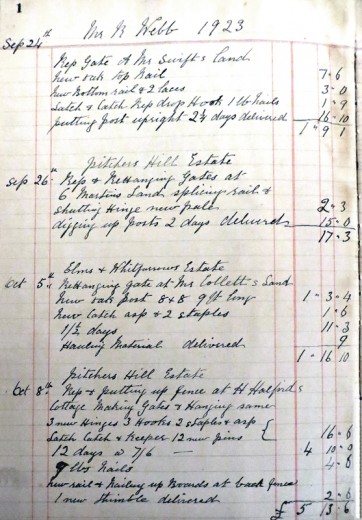 1
Mr R Webb 1923
Sep 24th
Rep Gate of Mr Swift's Land
New oak top Rail 7 - 6
New Bottom rail & 2 laces 3 - 0
Latch & Catch Rep drop Hook 1 lb nails 1 - 9
putting Post upright 2¼ days delivered 16 - 10
1 - 9 1
Pitchers Hill Estate
Sep 26th Rep & ReHanging Gates at
6 Martins Land splicing rail &
shutting Hinge new pale 2 - 3
digging up posts 2 days delivered 15 - 0
17 - 3
Elms & Estate
Oct 5th ReHanging Gate at Mr Collett's Land
New oak post 8 x 8 9 ft long 1 - 3 - 4
New Catch asp & 2 staples 1 - 6
1½ days 11 - 3
Hauling Material delivered 9
1 - 16 10
Pitchers Hill Estate
Oct 8th Rep & putting up fence at H Halfords
Cottage Making Gates & Hanging same
3 new Hinges 3 Hooks 2 staples & asp
Latch Catch & Keeper 12 new pins 16 - 6
12 days a 7/6 — 4 10 - 0
lbs Nails 4 - 6
New rail & Nailing up Boards at back fence
1 new thimble delivered 2 - 6
£ 5 13 - 6